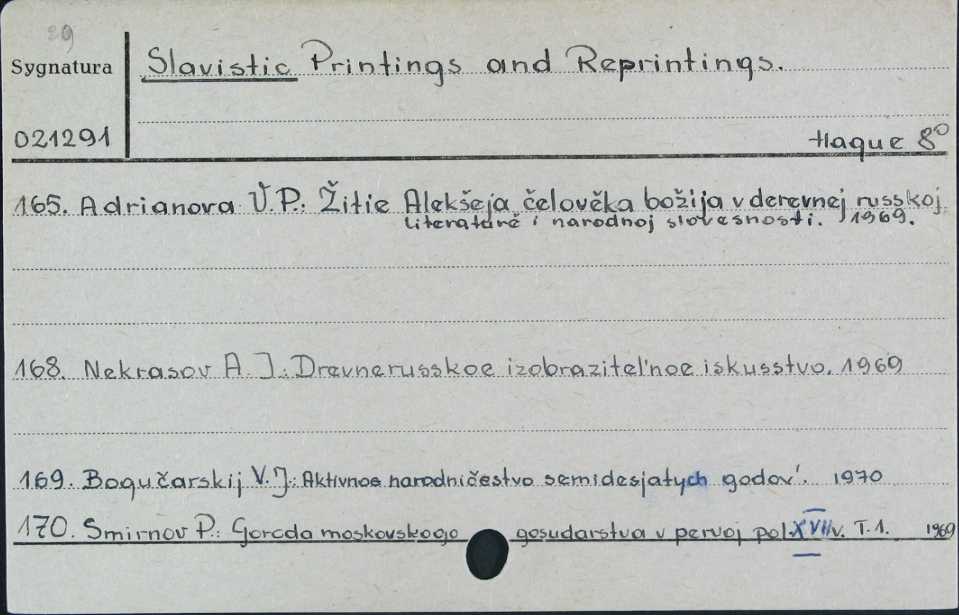 29
Sygnatura
Slavistic Printings and Reprintings.
021291
Haque 8°
165. Adrianova V.P.: Žitie Alekšeja čelověka božija v derevnej russkoj
literaturě i narodnoj slovesnosti. 1969.
168. Nekrasov A. J.: Drevnerusskoe izobrazitel'noe iskusstvo. 1969
169. Bogučarskij V. J.: Aktivnoe narodničestvo semidesjatych godov'. 1970
170. Smirnov P.: Goroda moskovskogo gosudarstva v pervoj pol. XVII v. T. 1. 1969